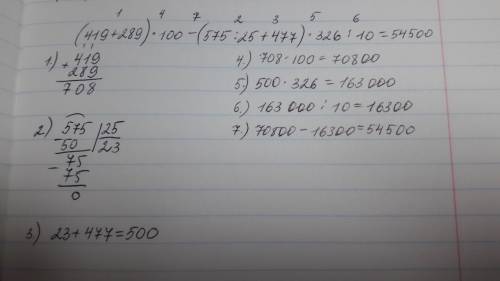 1 4 7 2 3 5 6
(419+289)·100-(575:25+477)·326:10=54500
1.) +419
289
708
2) 575 25
-50 23
-75
75
0
3) 23+477=500
4) 708·100=70800
5.) 500·326=163000
6.) 163000:10=16300
7.) 70800-16300=54500